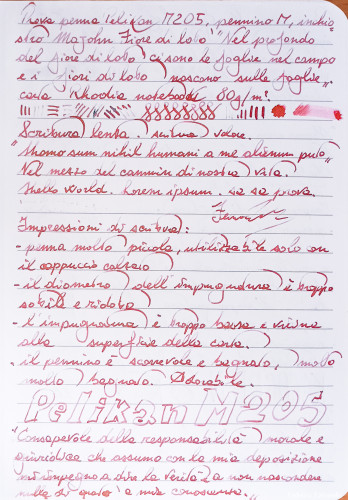 Prova penna Pelikan M205, pennino M, inchio
stro Majohn Fiore di loto "Nel profondo
del fiore di loto ci sono le foglie nel campo
e i fiori di loto nascono sulle foglie"
carta Rhodia notebook 80g/m²
Scrittura lenta. veloce.
"Homo sum nihil humani a me alienum puto"
Nel mezzo del cammin di nostra vita.
Hello World. Lorem ipsum. sa sa prova.
Impressioni di scrittura:
- penna molto piccola, utilizzabile solo con
il cappuccio calzato
- il diametro dell'impugnatura è troppo
sottile e ridotto
- l'impugnatura è troppo bassa e vicina
alla superficie della carta.
- il pennino è scorrevole e bagnato, molto
molto bagnato. Adorabile.
Pelikan M205
"Consapevole della responsabilità morale e
giuridica che assumo con la mia deposizione
mi impegno a dire la verità e a non nascondere
nulla di quanto a mia conoscenza."